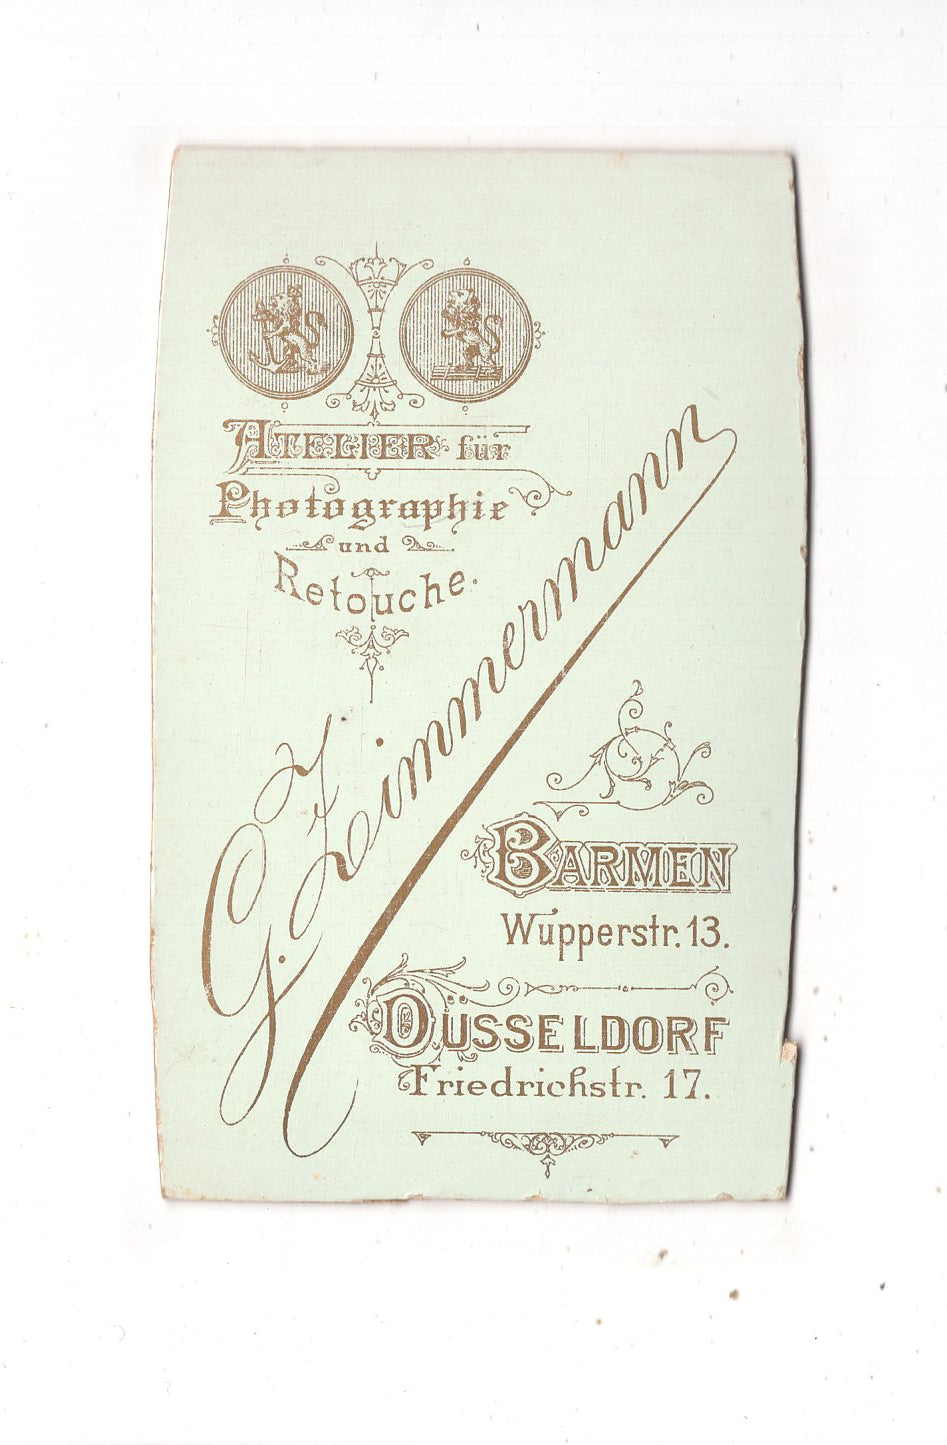 ATELIER für
Photographie
und
Retouche.
G. Zimmermann
BARMEN
Wupperstr. 13.
DÜSSELDORF
Friedrichstr. 17.